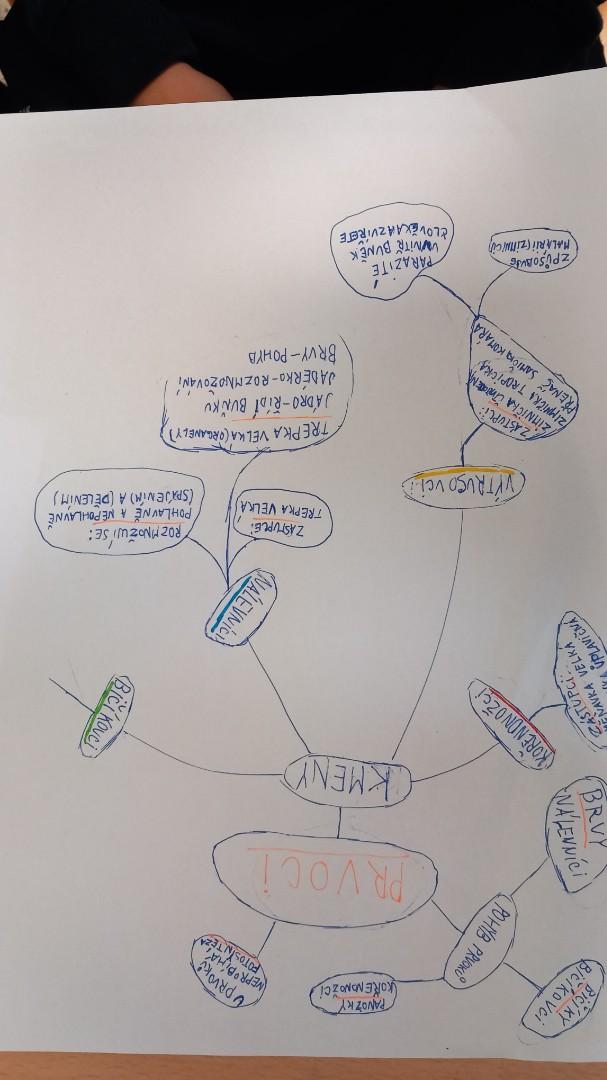 PRVOCI
U PRVOKŮ
NEPROBÍHÁ
FOTOSYNTÉZA
POHYB PRVOKŮ
PANOŽKY
KOŘENONOŽCI
BIČÍKY
BIČÍKOVCI
BRVY
NÁLEVNÍCI
KMENY
KOŘENONOŽCI
ZÁSTUPCI:
MĚŇAVKA VELKÁ
ÚPLAVIČNÁ
VÝTRUSOVCI
ZÁSTUPCI:
ZIMNIČKA
ZIMNIČKA TROPICKÁ
PŘENÁŠÍ SAMIČKY KOMÁRA
ZPŮSOBUJE
MALÁRII (ZIMNICI)
PARAZITÉ
UVNITŘ BUNĚK
ČLOVĚKA A ZVÍŘETE
NÁLEVNÍCI
ZÁSTUPCE:
TREPKA VELKÁ
TREPKA VELKÁ (ORGANELY)
JÁDRO-ŘÍDÍ BUŇKU
JADÉRKO-ROZMNOŽOVÁNÍ
BRVY-POHYB
ROZMNOŽUJÍ SE:
POHLAVNĚ A NEPOHLAVNĚ
(SPAJENÍM) A (DĚLENÍM)
BIČÍKOVCI